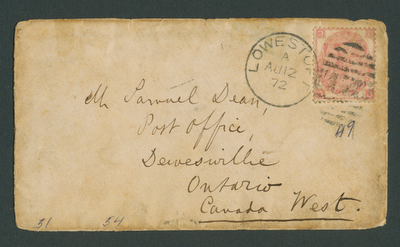 LOWESTOFT
A
AU 12
72
Mr Samuel Dean,
Post Office,
Dewesville
Ontario
Canada West.
49
31 34